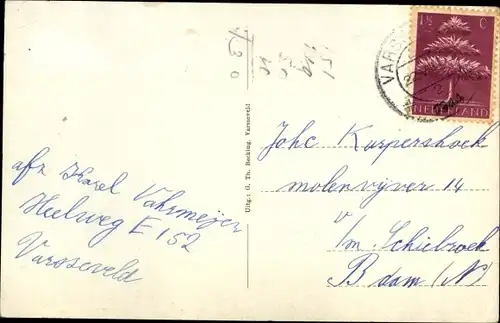 afz. Karel Vahrmeijer
Heelweg E 152
Varsseveld
Uitg.: G. Th. Becking, Varsseveld
1½ C
NEDERLAND
VARSS
Johc Kuypershoek
molenvijver 14
v/m. Schiebroek
R dam (N)